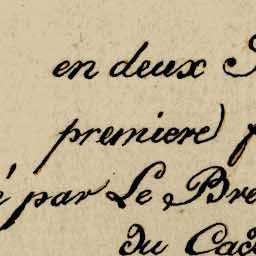 en deux
premiere
par Le Bre
Du Cad